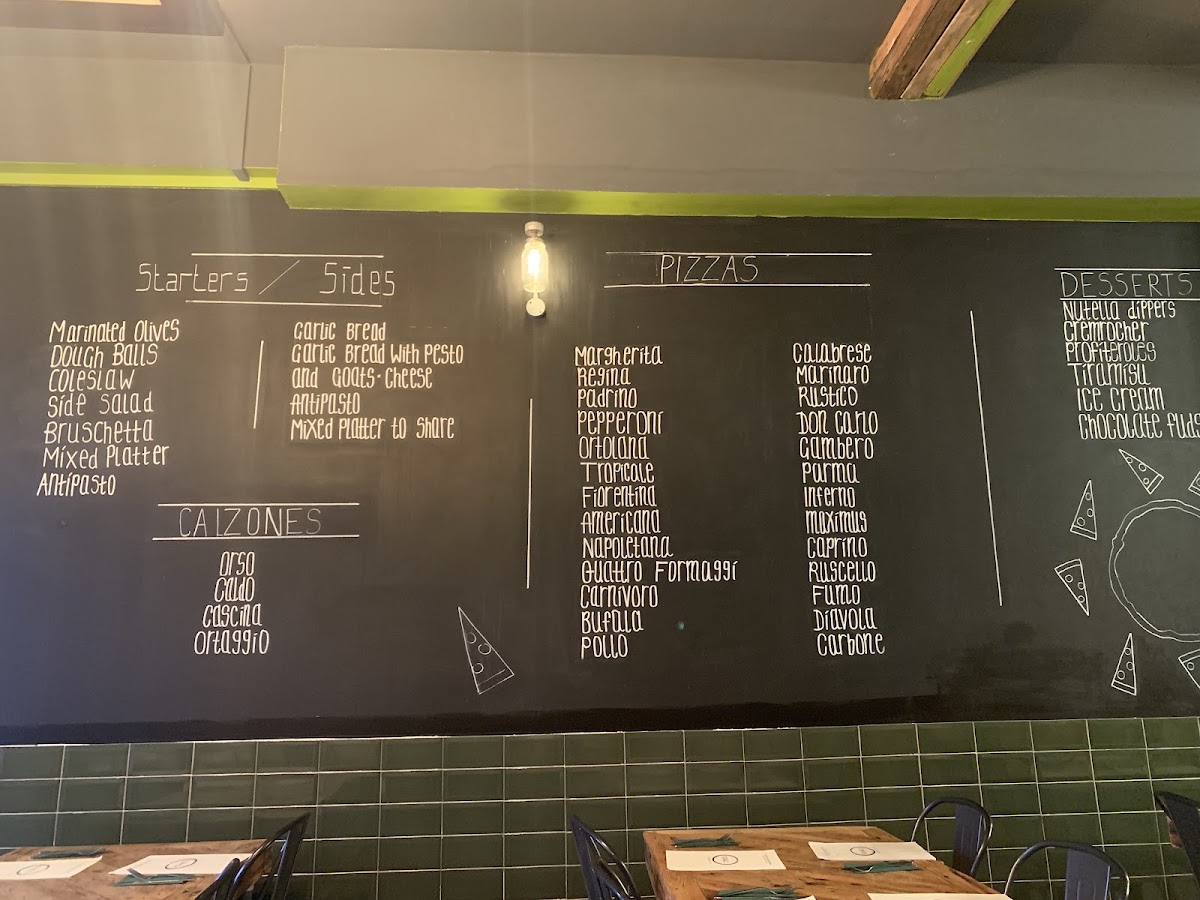 Starters / Sides
Marinated Olives
Dough Balls
Coleslaw
Side Salad
Bruschetta
Mixed Platter
Antipasto
Garlic Bread
Garlic Bread With Pesto
and Goats-Cheese
Antipasto
Mixed Platter to Share
CALZONES
Orso
Caldo
Cascina
Ortaggio
PIZZAS
Margherita
Regina
Padrino
Pepperoni
Ortolana
Tropicale
Fiorentina
Americana
Napoletana
Quattro Formaggi
Carnivoro
Bufala
Pollo
Calabrese
Marinaro
Rustico
Don Carlo
Gambero
Parma
Inferno
Maximus
Caprino
Ruscello
Fumo
Diavola
Carbone
DESSERTS
Nutella Dippers
Cremrocher
Profiteroles
Tiramisu
Ice Cream
Chocolate Fudg